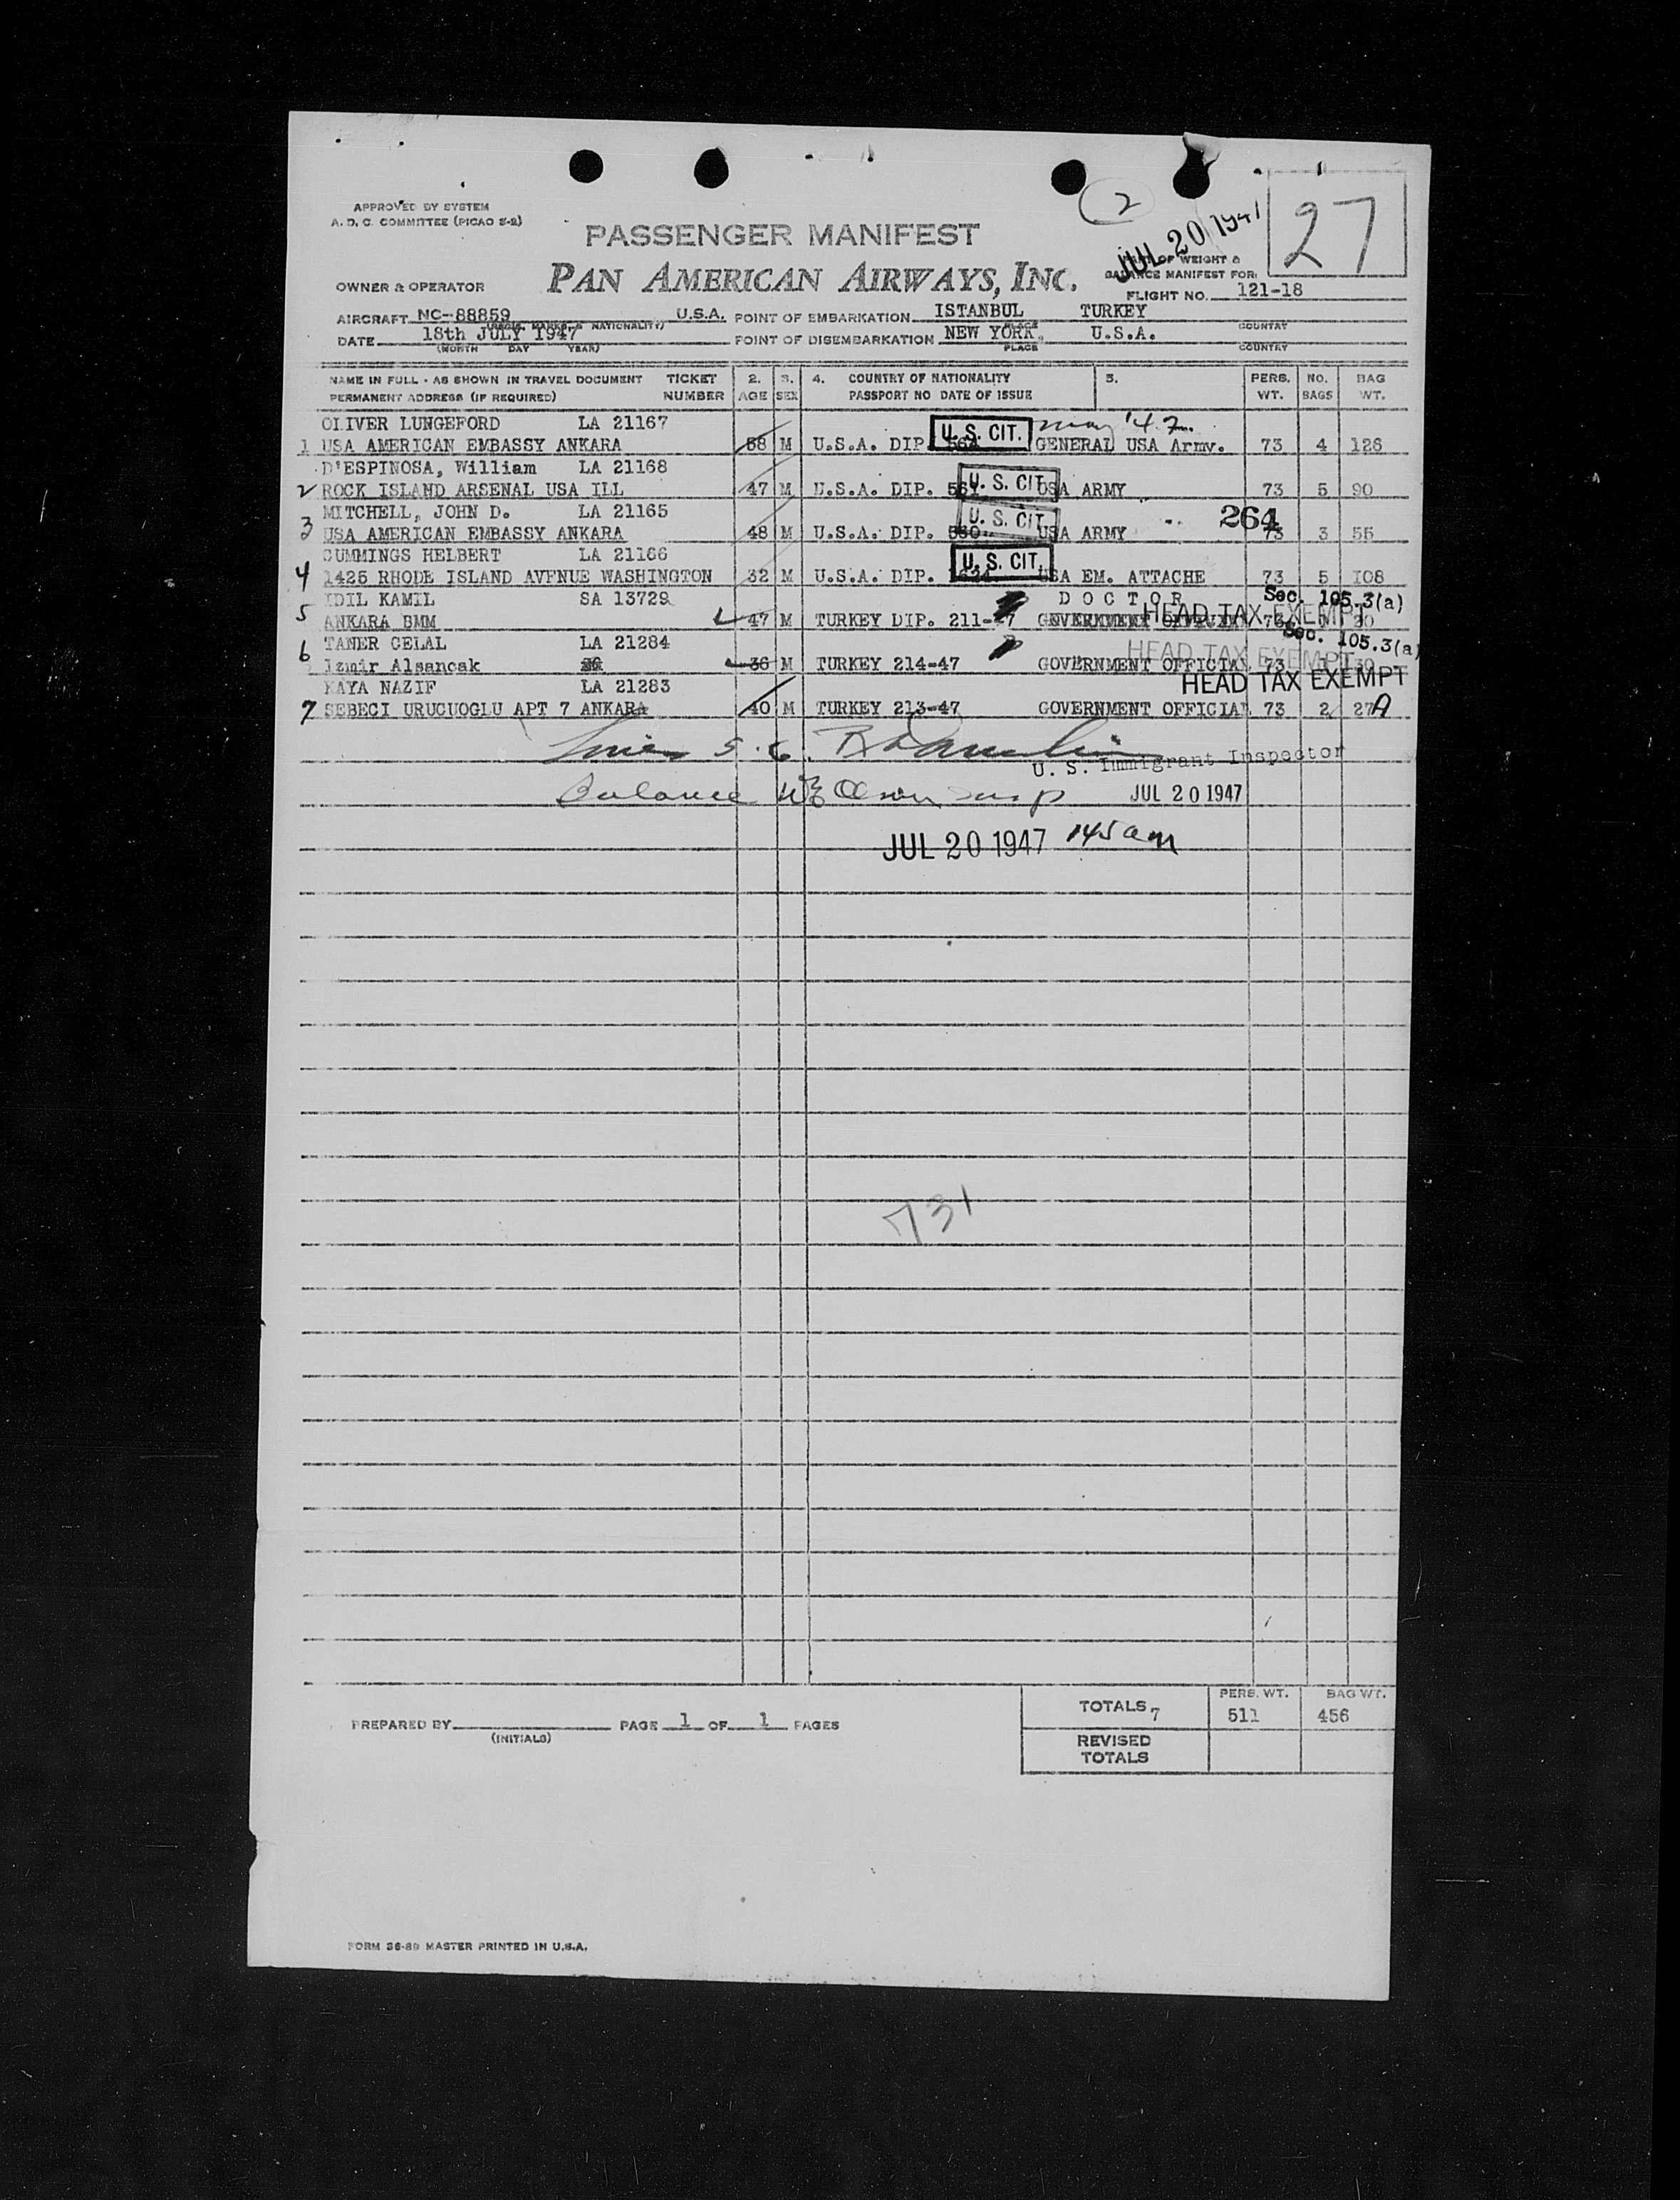 2
JUL 20 1947
27
APPROVED BY SYSTEM
A. D. C. COMMITTEE (PICAO S-2)
PASSENGER MANIFEST
PAN AMERICAN AIRWAYS, INC.
OF WEIGHT &
BALANCE MANIFEST FOR:
OWNER & OPERATOR
FLIGHT NO. 121-18
AIRCRAFT NC-88859 U.S.A. POINT OF EMBARKATION ISTANBUL TURKEY
(REGIS. MARKS & NATIONALITY) PLACE COUNTRY
DATE 18th JULY 1947 POINT OF DISEMBARKATION NEW YORK, U.S.A.
(MONTH DAY YEAR) PLACE COUNTRY
NAME IN FULL - AS SHOWN IN TRAVEL DOCUMENT TICKET 2. 3. 4. COUNTRY OF NATIONALITY 5. PERS. NO. BAG
PERMANENT ADDRESS (IF REQUIRED) NUMBER AGE SEX PASSPORT NO DATE OF ISSUE WT. BAGS WT.
OLIVER LUNGEFORD LA 21167 U. S. CIT. may '47
1 USA AMERICAN EMBASSY ANKARA 58 M U.S.A. DIP. 564 GENERAL USA Army. 73 4 126
D'ESPINOSA, William LA 21168 U. S. CIT
2 ROCK ISLAND ARSENAL USA ILL 47 M U.S.A. DIP. 561 USA ARMY 73 5 90
MITCHELL, JOHN D. LA 21165 U. S. CIT. 264
3 USA AMERICAN EMBASSY ANKARA 48 M U.S.A. DIP. 560 USA ARMY 73 3 55
CUMMINGS HELBERT LA 21166 U. S. CIT.
4 1425 RHODE ISLAND AVENUE WASHINGTON 32 M U.S.A. DIP. USA EM. ATTACHE 73 5 108
IDIL KAMIL SA 13729 DOCTOR Sec. 105.3(a)
HEAD TAX EXEMPT
5 ANKARA BMM 47 M TURKEY DIP. 211-47
TANER CELAL LA 21284 Sec. 105.3(a)
HEAD TAX EXEMPT
6 Izmir Alsancak 36 M TURKEY 214-47 GOVERNMENT OFFICIAL 73
KAYA NAZIF LA 21283 HEAD TAX EXEMPT
7 SEBECI URUCUOGLU APT 7 ANKARA 40 M TURKEY 213-47 GOVERNMENT OFFICIAL 73 2 27 A
U. S. Immigrant Inspector
Balance JUL 20 1947
JUL 20 1947 145 am
731
TOTALS 7 PERS. WT. 511 BAG WT. 456
PREPARED BY PAGE 1 OF 1 PAGES
(INITIALS)
REVISED
TOTALS
FORM 36-89 MASTER PRINTED IN U.S.A.